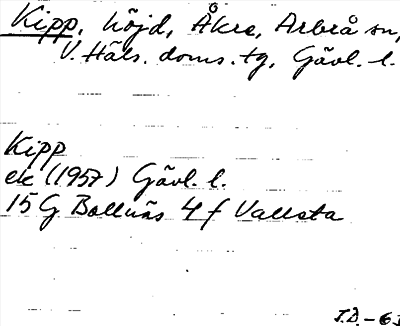 Kipp, höjd, Åkre, Arbrå sn,
V. Häls. doms. tg, Gävl. l.
Kipp
ek (1957) Gävl. l.
15 G Bollnäs 4 f Vallsta
T.D. -63